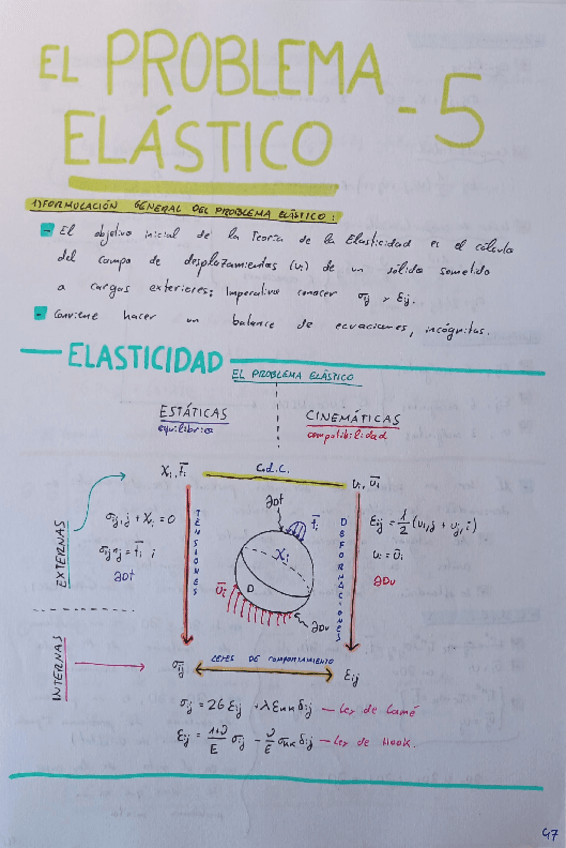 EL PROBLEMA
ELÁSTICO - 5
1) FORMULACIÓN GENERAL DEL PROBLEMA ELÁSTICO:
- El objetivo inicial de la Teoría de la Elasticidad es el cálculo
del campo de desplazamientos (ui) de un sólido sometido
a cargas exteriores; Imperativo conocer σij y εij.
- Conviene hacer un balance de ecuaciones, incógnitas.
ELASTICIDAD
EL PROBLEMA ELÁSTICO
ESTÁTICAS CINEMÁTICAS
equilibrio compatibilidad
Xi, t̄i C.d.C. ui, ūi
EXTERNAS
σij,j + Xi = 0
σij nj = t̄i ;
∂Dt
TENSIONES
∂Dt
t̄i
Xi
D
ūi
∂Du
DEFORMACIONES
εij = 1/2 (ui,j + uj,i)
ui = ūi
∂Du
INTERNAS
σij LEYES DE COMPORTAMIENTO εij
σij = 2G εij + λ εkk δij — Ley de Lamé
εij = 1+ν/E σij - ν/E σkk δij — Ley de Hook.
47